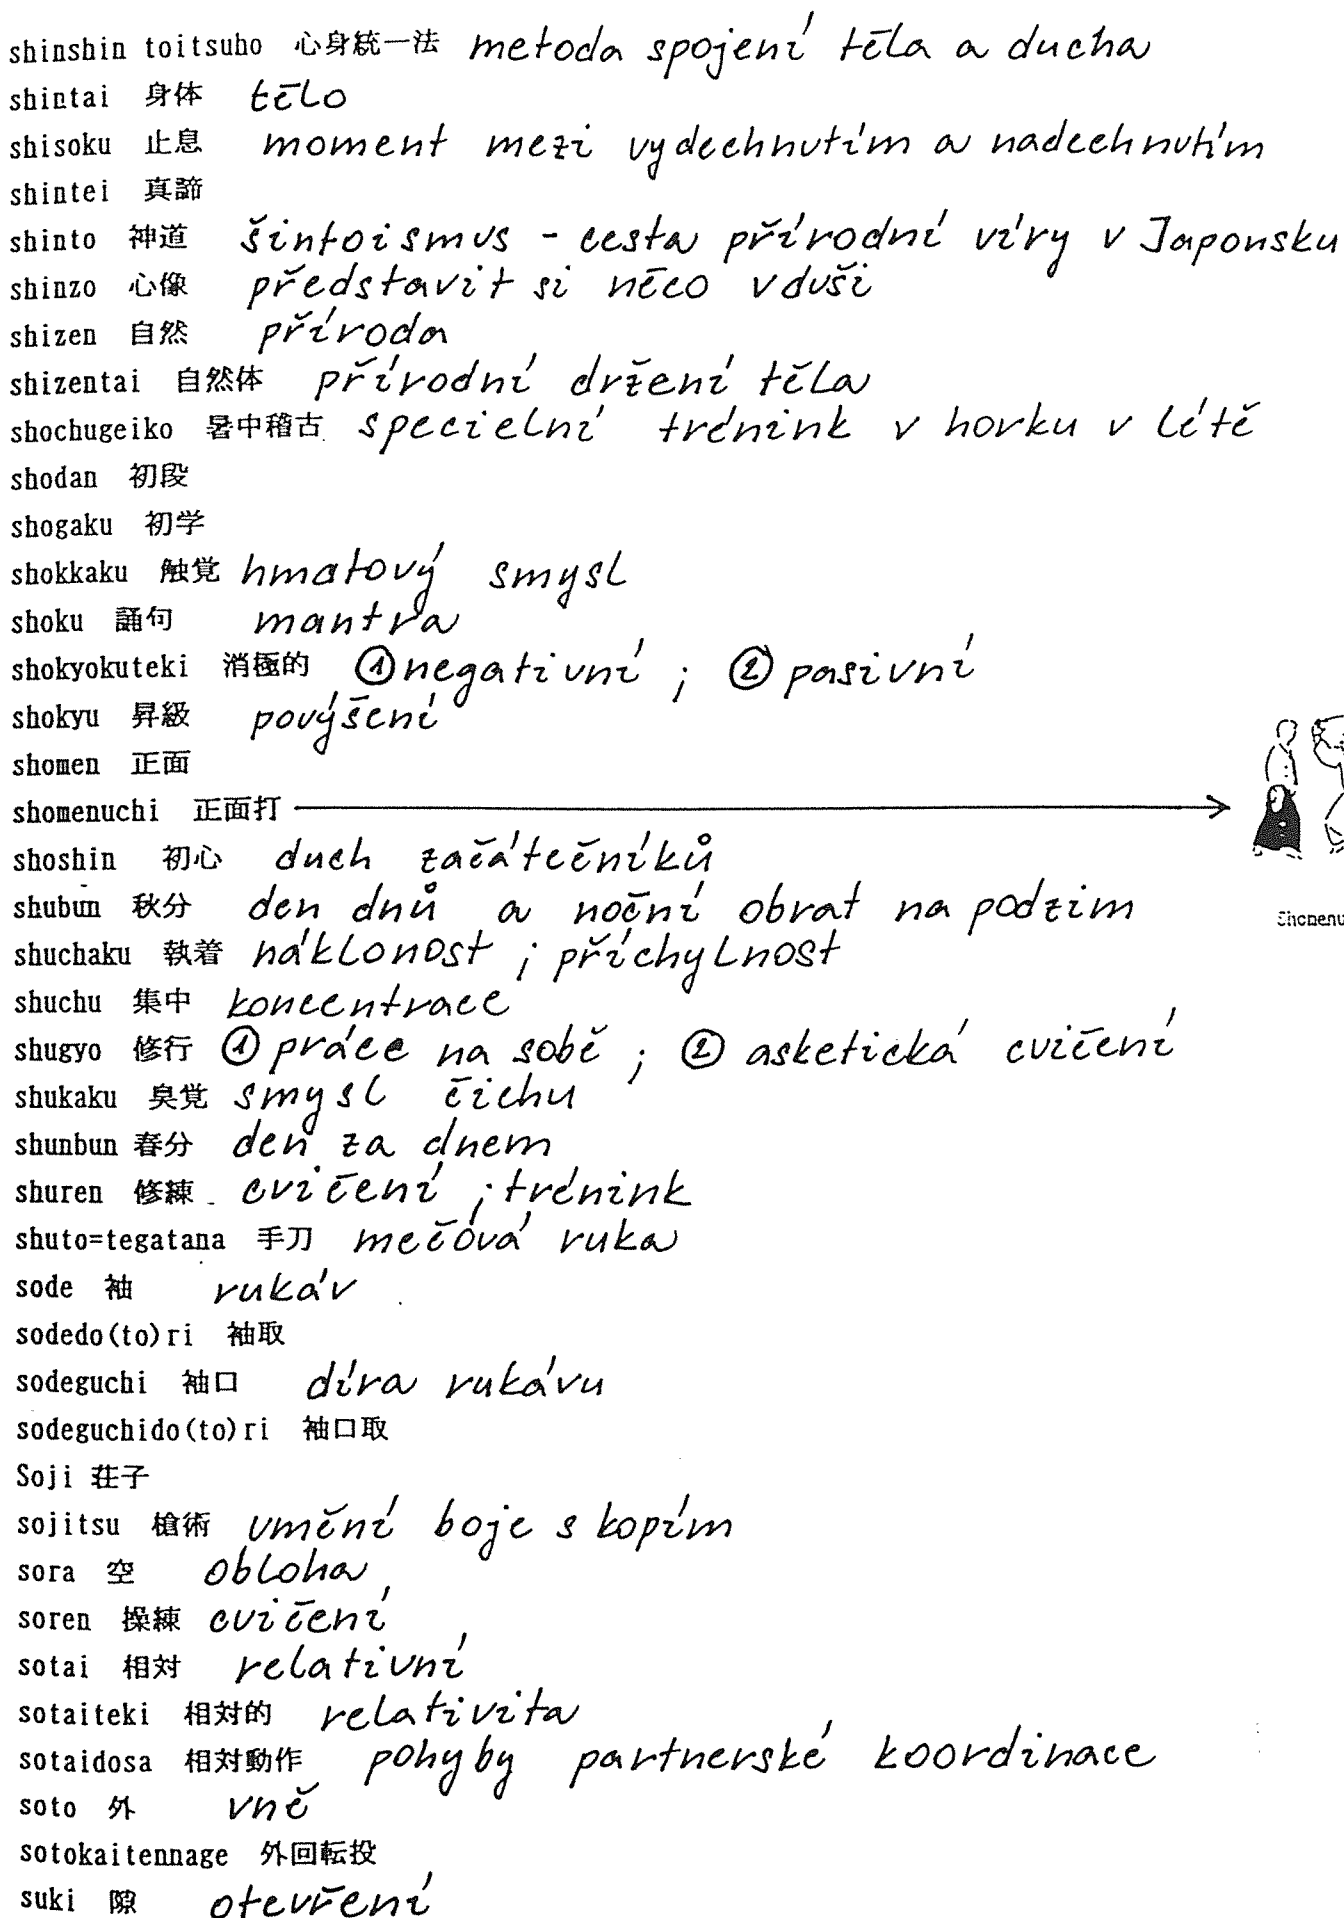 shinshin toitsuho 心身統一法 metoda spojení těla a ducha
shintai 身体 tělo
shisoku 止息 moment mezi vydechnutím a nadechnutím
shintei 真諦
shinto 神道 šintoismus - cesta přírodní víry v Japonsku
shinzo 心像 představit si něco v duši
shizen 自然 příroda
shizentai 自然体 přírodní držení těla
shochugeiko 暑中稽古 specielní trénink v horku v létě
shodan 初段
shogaku 初学
shokkaku 触覚 hmatový smysl
shoku 誦句 mantra
shokyokuteki 消極的 ① negativní ; ② pasivní
shokyu 昇級 povýšení
shomen 正面
shomenuchi 正面打
shoshin 初心 duch začátečníků
shubun 秋分 den dnů a noční obrat na podzim
Shomenu
shuchaku 執着 náklonost ; příchylnost
shuchu 集中 koncentrace
shugyo 修行 ① práce na sobě ; ② asketická cvičení
shukaku 臭覚 smysl čichu
shunbun 春分 den za dnem
shuren 修練 cvičení ; trénink
shuto=tegatana 手刀 mečová ruka
sode 袖 rukáv
sodedo(to)ri 袖取
sodeguchi 袖口 díra rukávu
sodeguchido(to)ri 袖口取
Soji 荘子
sojitsu 槍術 umění boje s kopím
sora 空 obloha
soren 操練 cvičení
sotai 相対 relativní
sotaiteki 相対的 relativita
sotaidosa 相対動作 pohyby partnerské koordinace
soto 外 vně
sotokaitennage 外回転投
suki 隙 otevření